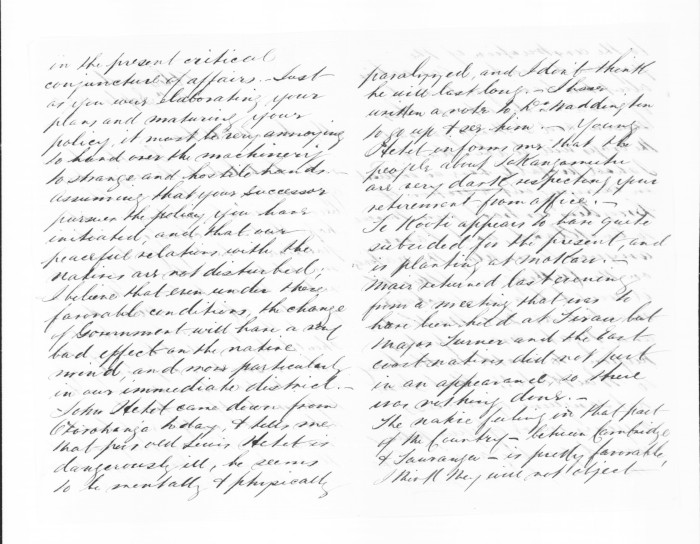 in the present critical
conjuncture of affairs. Just
as you were elaborating your
plans and maturing your
policy it must be very annoying
to hand over the machinery
to strange and hostile hands. —
assuming that your successor
pursues the policy you have
initiated, and that our
peaceful relations with the
natives are not disturbed,
I believe that even under these
favorable conditions, the change
of Government will have a very
bad effect on the native
mind, and more particularly
in our immediate district. —
John Hetet came down from
Otorohanga today, & tells me
that poor old Louis Hetet is
dangerously ill, he seems
to be mentally & physically
paralyzed, and I don't think
he will last long. — I have
written a note to Dr Waddington
to go up & see him. — Young
Hetet informs me that the
people about Tokangamutu
are very dark respecting your
retirement from office. —
Te Kooti appears to have quite
subsided for the present, and
is planting at
Mair returned last evening
from a meeting that was to
have been held at Tirau but
Major Turner and the East
coast natives did not put
in an appearance, so there
was nothing done. —
The native feeling in that part
of the Country — between Cambridge
& Tauranga — is pretty favorable,
I think they will not object